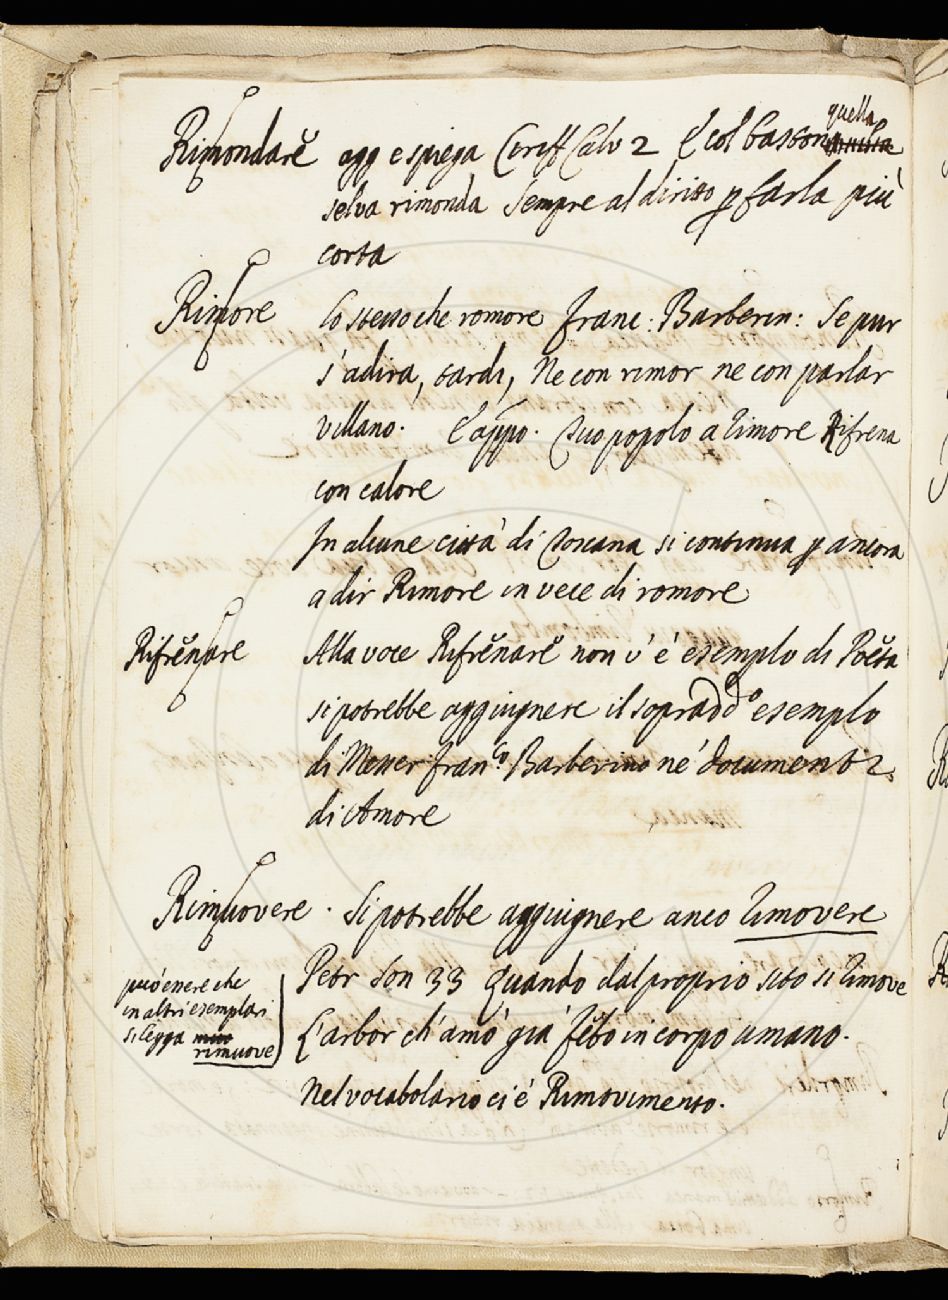 Rimondare agg e spiega Ciriff Calv 2 E col baston quella
selva rimonda Sempre al diritto p farla più
corta
Rimore Lo stesso che romore Franc: Barberin: Se pur
s'adira, tardi, Ne con rimor ne con parlar
villano. E appo. Suo popolo a Rimore Rifrena
con calore
In alcune città di Toscana si continua p ancora
a dir Rimore in vece di romore
Rifrenare Alla voce Rifrenare non v'è esemplo di Poeta
si potrebbe aggiugnere il sopradd.o esemplo
di Messer Fran.co Barberino ne' documenti
di Amore
Rimuovere. Si potrebbe aggiugnere anco Rimovere
Petr Son 33 Quando dal proprio sito si rimove
L'arbor ch'amò già Febo in corpo umano.
può essere che
in altri esemplari
si legga
rimuove
Nel vocabolario ci è Rimovimento.